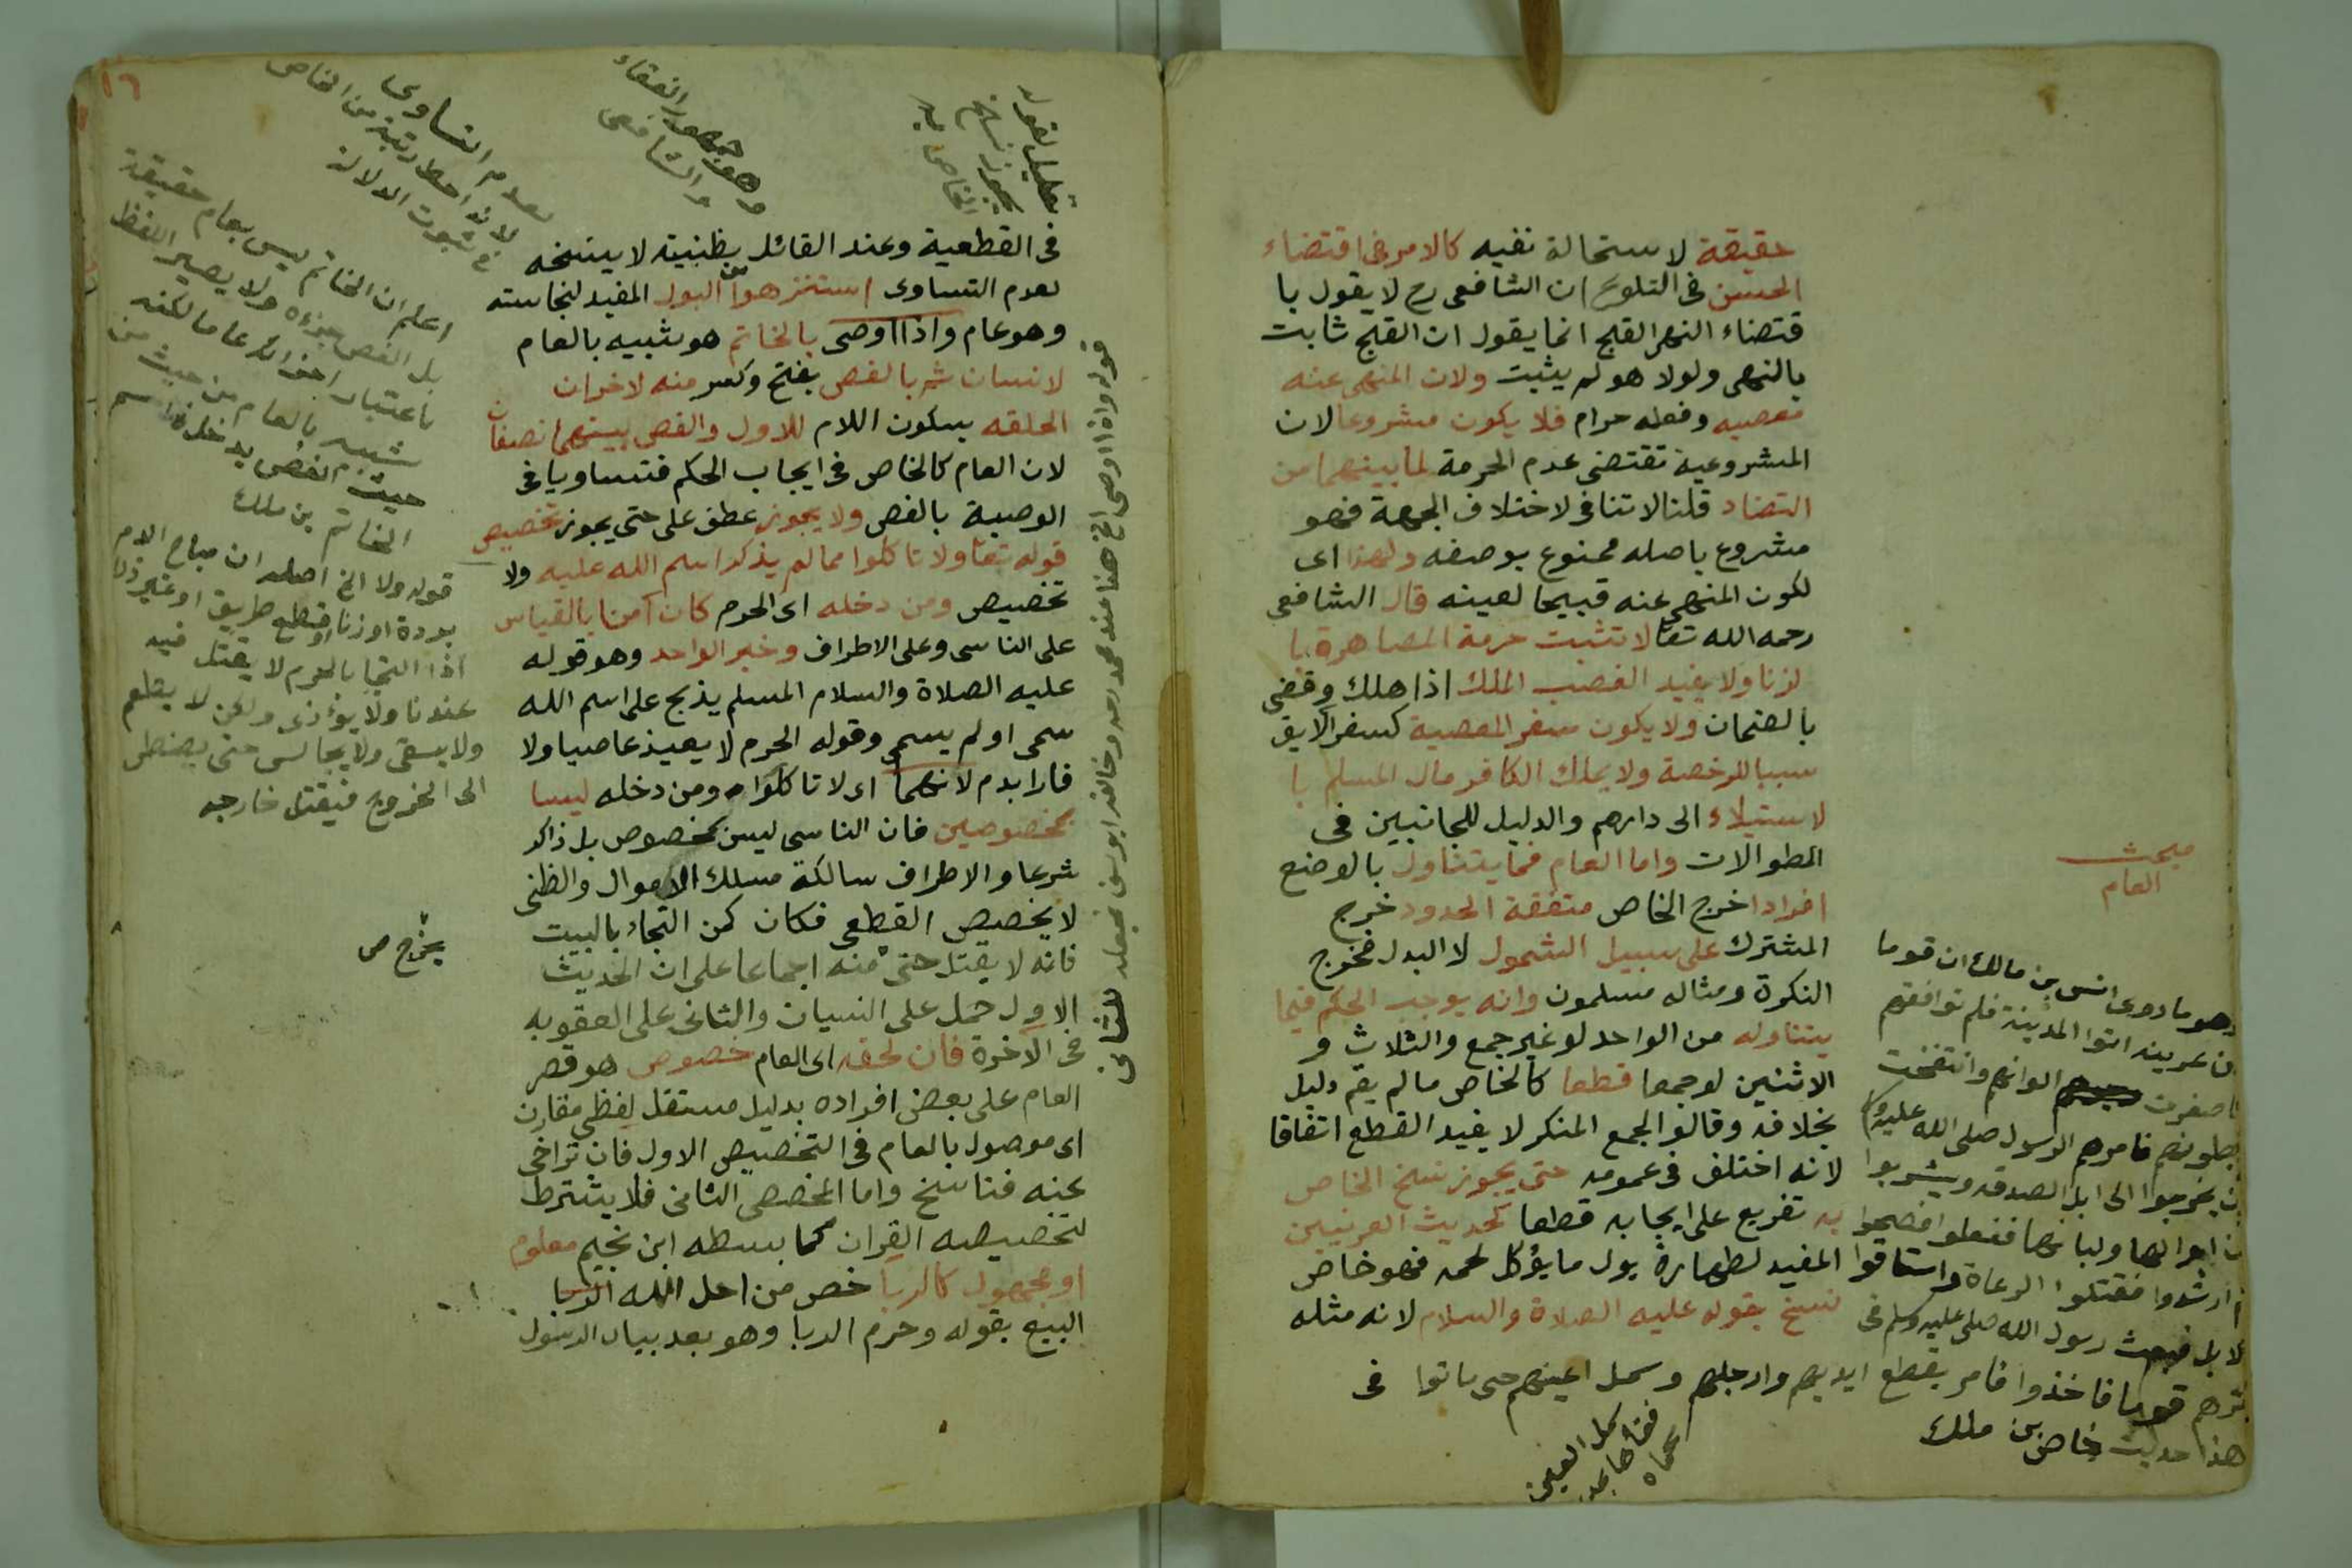 حقيقة لاستحالة نفيه كالامر فى اقتضاء
الحسن فى التلويح ان الشافعى رح لا يقول با
قتضاء النهى القبح انما يقول ان القبح ثابت
بالنهى ولولا هو لم يثبت ولان المنهى عنه
معصيه وفعله حرام فلا يكون مشروعا لان
المشروعية تقتضى عدم الحرمة لما بينهما من
التضاد قلنا لا تنافى لاختلاف الجهة فهو
مشروع باصله ممنوع بوصفه ولهذا اى
لكون المنهى عنه قبيحا لعينه قال الشافعى
رحمه الله تعا لا تثبت حرمة المصاهرة با
لزنا ولا يفيد الغصب الملك اذا هلك وقضى
بالضمان ولا يكون سفر المعصية كسفر الآبق
سببا للرخصة ولا يملك الكافر مال المسلم با
لاستيلاء الى دارهم والدليل للجانبين فى
المطوالات واما العام فما يتناول بالوضع
افرادا خرج الخاص متفقة الحدود خرج
المشترك على سبيل الشمول لا البدل فخرج
النكرة ومثاله مسلمون وانه يوجب الحكم فيما
يتناوله من الواحد لو غير جمع والثلاث و
الاثنين لو جمعا قطعا كالخاص ما لم يقم دليل
بخلافه وقالوا الجمع المنكر لا يفيد القطع اتفاقا
لانه اختلف فى عمومه حتى يجوز نسخ الخاص
به تفريع على ايجابه قطعا كحديث العرنيين
المفيد لطهارة بول ما يؤكل لحمه فهو خاص
نسخ بقوله عليه الصلاة والسلام لانه مثله
مبحث
العام
وهو ما روى انس بن مالك ان قوما
من عرينه اتوا المدينة فلم توافقهم
فاصفرت الوانهم وانتفخت
بطونهم فامرهم الرسول صلى الله عليه
ان يخرجوا الى ابل الصدقه ويشربوا
من ابوالها ولبانها ففعلوا فصحوا
ثم ارتدوا فقتلوا الرعاة واستاقوا
الابل فبعث رسول الله صلى عليه وسلم فى
اثرهم قوما فاخذوا فامر بقطع ايديهم وارجلهم وسمل اعينهم حتى ماتوا فى
هذا حديث خاص بن ملك
سمل العين
فقأها
١٦
فى القطعية وعند القائل بظنيته لا ينسخه
لعدم التساوى استنزهوا من البول المفيد لنجاسته
وهو عام واذا اوصى بالخاتم هو شبيه بالعام
لانسان ثم بالفص بفتح وكسر منه لاخر ان
الحلقه بسكون اللام للاول والفص بينهما نصفان
لان العام كالخاص فى ايجاب الحكم فتساويا فى
الوصية بالفص ولا يجوز عطف على حتى يجوز تخصيص
قوله تعا ولا تاكلوا مما لم يذكر اسم الله عليه ولا
تخصيص ومن دخله اى الحرم كان آمنا بالقياس
على الناسى وعلى الاطراف وخبر الواحد وهو قوله
عليه الصلاة والسلام المسلم يذبح على اسم الله
سمى او لم يسمى وقوله الحرم لا يعيذ عاصيا ولا
فارا بدم لانهما اى لا تاكلوا ومن دخله ليسا
بمخصوصين فان الناسى ليس بمخصوص بل ذاكر
شرعا والاطراف سالكة مسلك الاموال والظنى
لا يخصيص القطعى فكان كمن التجاء بالبيت
فانه لا يقتل حتى منه اجماعا على ان الحديث
الاول حمل على النسيان والثانى على العقوبه
فى الآخرة فان لحقه اى العام خصوص هو قصر
العام على بعض افراده بدليل مستقل لفظى مقارن
اى موصول بالعام فى التخصيص الاول فان تراخى
عنه فناسخ واما المخصص الثانى فلا يشترط
لتخصيصه القران كما بسطه ابن نجيم معلوم
او مجهول كالربا خص من احل الله
البيع بقوله وحرم الربا وهو بعد بيان الرسول
تعليل لقوله
يجوز نسخ
الخاص به
وهو جمهور الفقهاء
والشافعى
لعدم التساوى
لانه احط رتبة من الخاص
فى ثبوت الدلالة
اعلم ان الخاتم ليس بعام حقيقة
بل الفص جزءه ولا يصير اللفظ
باعتبار اجزائه عاما لكنه
شبيه بالعام من حيث من
حيث الفص يدخل فى اسم
الخاتم بن ملك
قوله ولا الخ اصله ان مباح الدم
بردة او زنا او قطع طريق او غير ذلك
اذا التجا بالحرم لا يقتل فيه
عندنا ولا يؤذى ولكن لا يطعم
ولا يسقى ولا يجالس حتى يضطر
الى الخروج فيقتل خارجه
يخرج ص
قوله واذا اوصى الخ هذا عند محمد رحمه وخالفه ابو يوسف فجعله للثانى